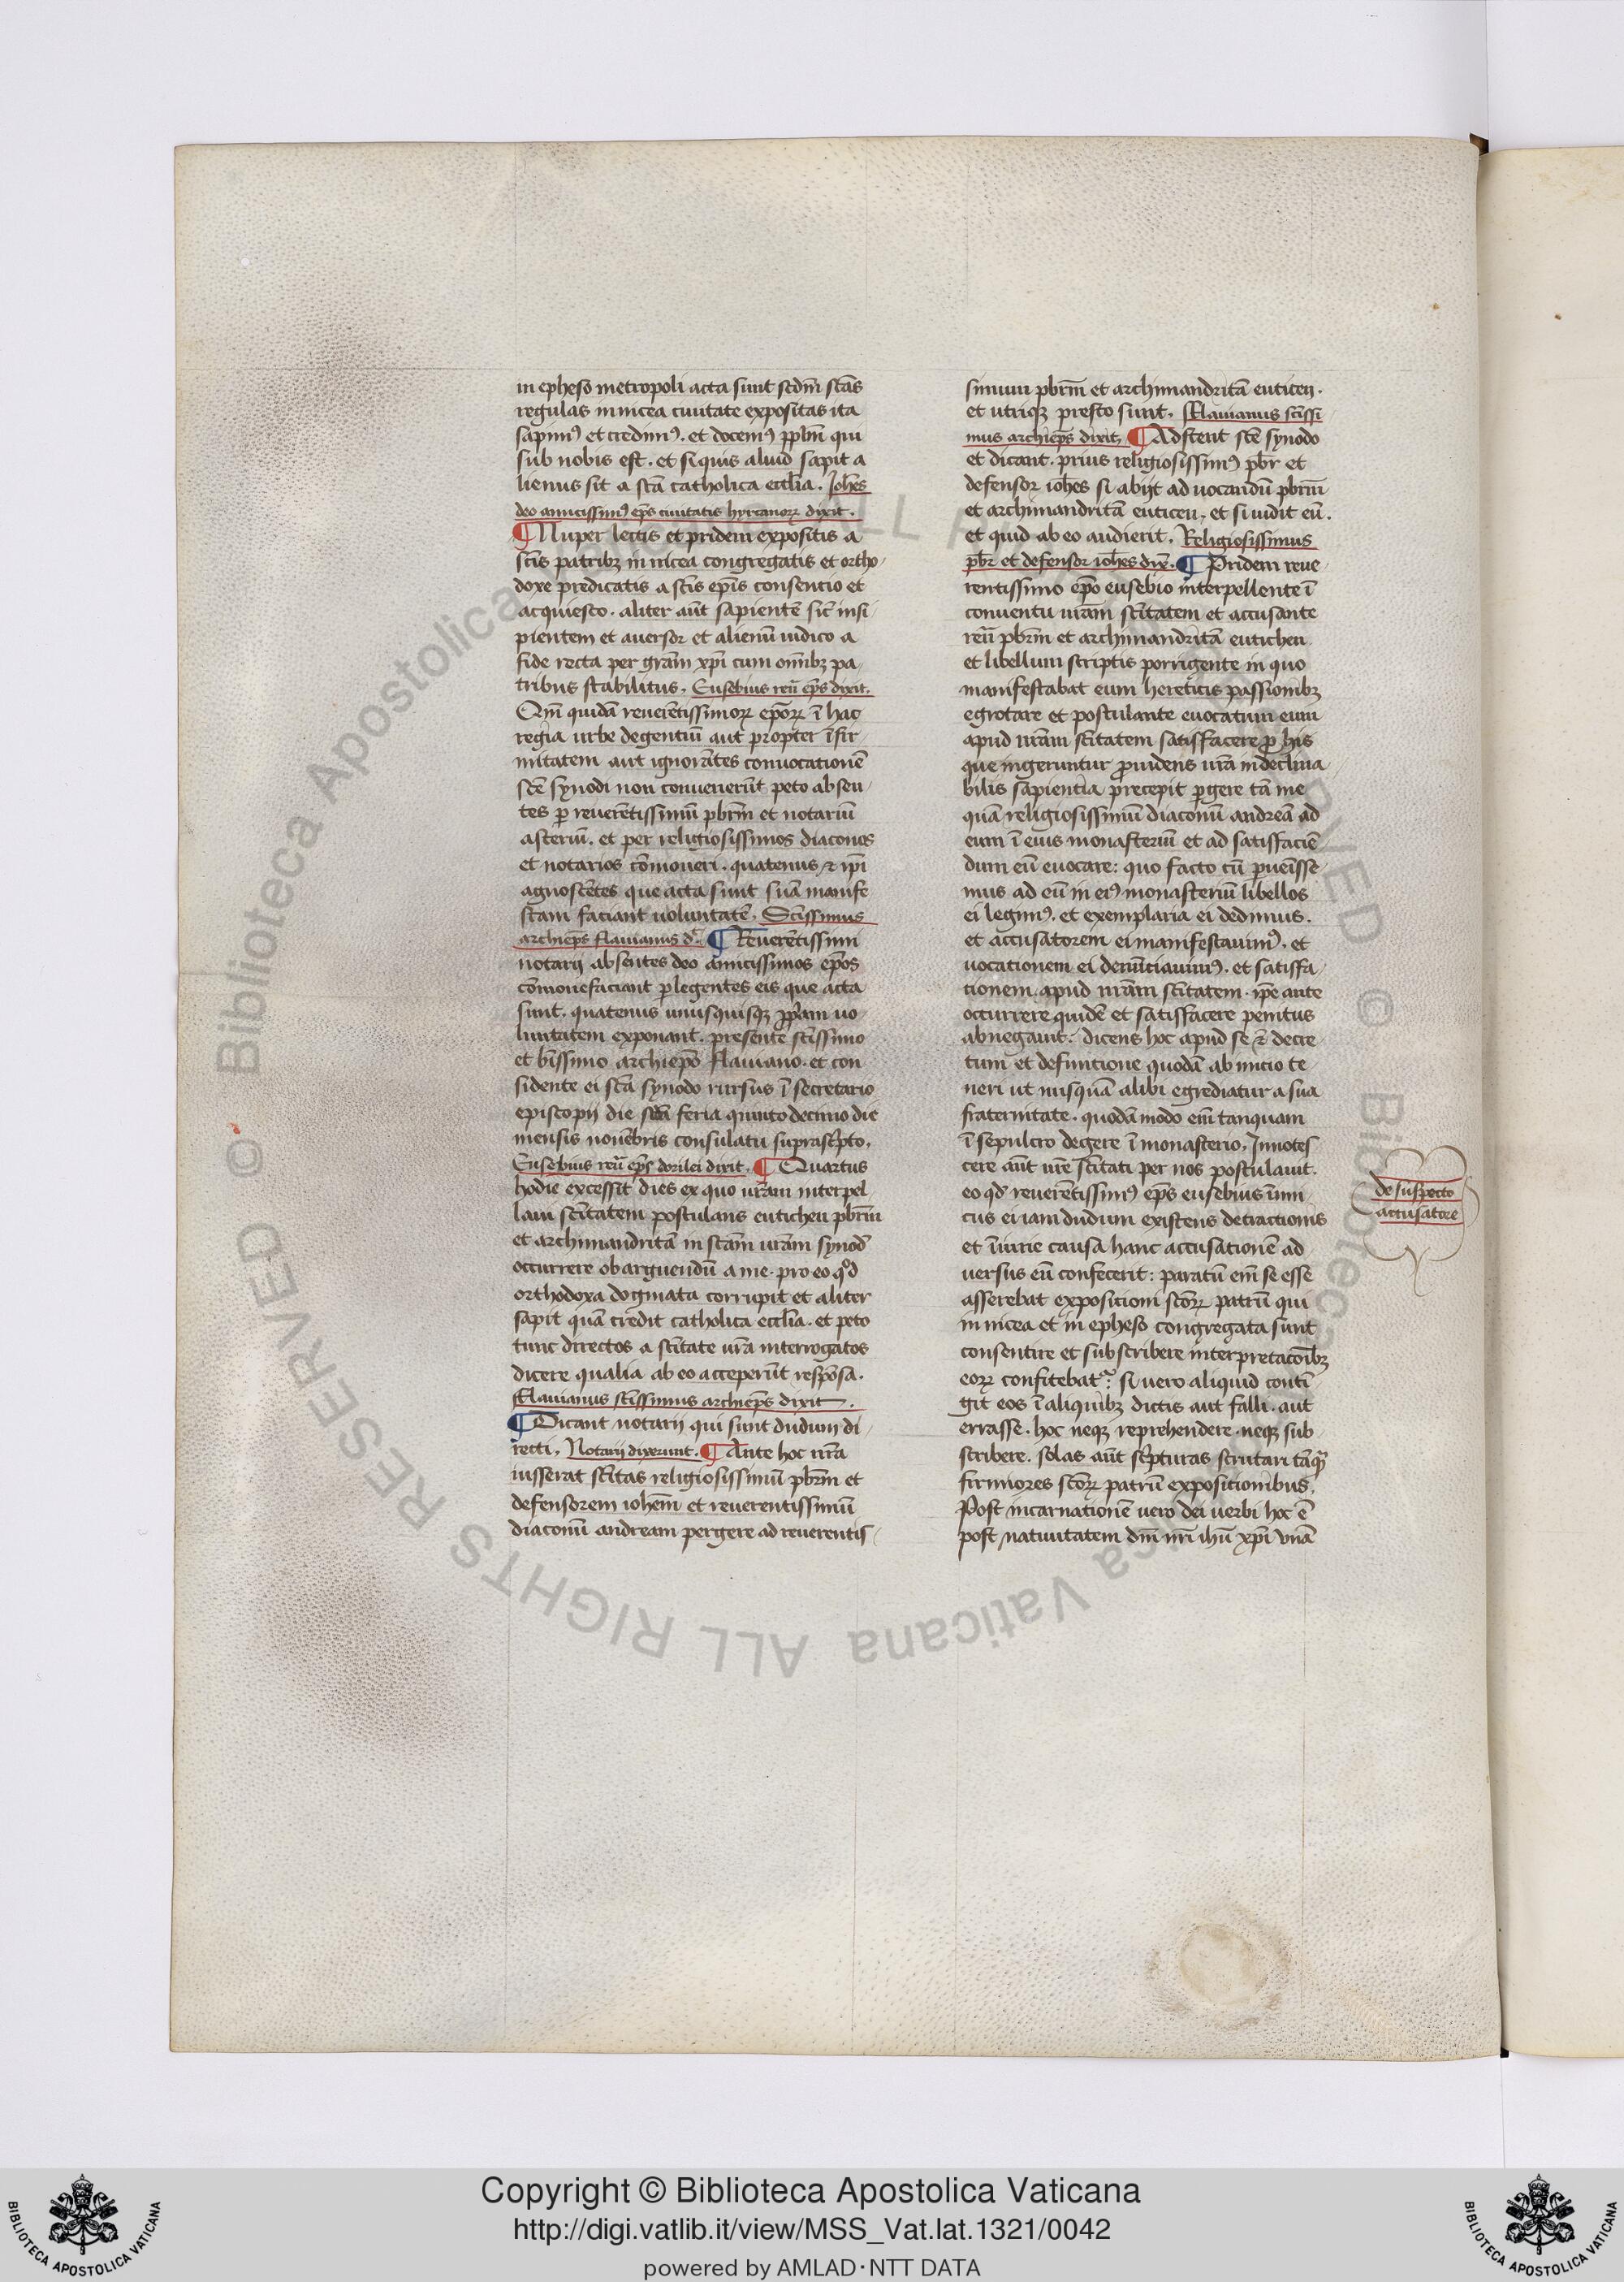 in epheso metropoli acta sunt scdm̄ scās
regulas in nicea ciuitate expositas ita
sapimꝰ et credimꝰ. et docemꝰ pplm̄ qui
sub nobis est. et si quis aliud sapit a
lienus sit a scā catholica eccl̄ia. Ioh̄es
deo amicissimꝰ ep̄s ciuitatis hyrcanoꝝ dixit.
¶ Nuper lectis et pridem expositis a
scīs patribꝫ in nicea congregatis et ortho
doxe predicatis a scīs ep̄is consencio et
acquiesco. aliter aūt sapientē sic̄ insi
pientem et auersor et alienū iudico a
fide recta per grām xp̄i cum om̄ibꝫ pa
tribus stabilitus. Eusebius reū ep̄s dixit.
Qm̄ quidā reuerētissimoꝝ ep̄oꝝ ī hac
regia urbe degentiū aut propter īfir
mitatem aut ignorātes conuocationē
scē synodi non conuenerūt peto absen
tes ꝑ reuerētissimū pbr̄m et notariū
asteriū. et per religiosissimos diaconos
et notarios cōmoneri. quatenus ⁊ ip̄i
agnoscētes que acta sunt suā manife
stam faciant uoluntatē. Scīssimus
archiep̄s flauianus d. ¶ Reuerētissimi
notarij absentes deo amicissimos ep̄os
cōmonefaciant ꝑlegentes eis que acta
sunt. quatenus unusquisqꝫ pp̄am uo
luntatem exponant. presente scīssimo
et bīssimo archiep̄o flauiano. et con
sidente ei scā synodo rursus ī secretario
episcopij die feria quinto decimo die
mensis nouēbris consulatu suprascp̄to.
Eusebius reū ep̄s dorilei dixit. ¶ Quartus
hodie excessit dies ex quo ur̄am interpel
lam scītatem postulans euticheu pbr̄m
et archimandritā in scām ur̄am synod̄
occurrere ob arguendū a me. pro eo qd̄
orthodoxa dogmata corrupit et aliter
sapit quā credit catholica eccl̄ia. et peto
tunc directos a scītate ur̄a interrogatos
dicere qualia ab eo acceperūt respōsa.
Flauianus scīssimus archiep̄s dixit.
¶ Dicant notarij qui sunt dudum di
recti. Notarij dixerunt. ¶ Ante hoc ur̄a
iusserat scītas religiosissimū pbr̄m et
defensorem ioh̄em et reuerentissimū
diaconū andream pergere ad reuerentis
simum pbr̄m et archimandritā euticen.
et utriqꝫ presto sunt. Flauianus scīssi
mus archiep̄s dixit. ¶ Adstent scē synodo
et dicant. prius religiosissimꝰ pbr̄ et
defensor ioh̄es si abijt ad uocandū pbr̄m
et archimandritā euticeu. et si uidit eū.
et quid ab eo audierit. Religiosissimus
pbr̄ et defensor ioh̄es dix̄. ¶ Pridem reue
rentissimo ep̄o eusebio interpellente ī
conuentu ur̄am scītatem et accusante
reū pbr̄m et archimandritā euticheu
et libellum scriptis porrigente in quo
manifestabat eum hereticis passionibꝫ
egrotare et postulante euocatum eum
apud ur̄am scītatem satisfacere ꝓ his
que ingeruntur ꝓuidens ur̄a indeclina
bilis sapientia precepit ꝑgere tā me
quā religiosissimū diaconū andreā ad
eum ī eius monasteriū et ad satisfaciē
dum eū euocare: quo facto cū ꝑuēisse
mus ad eū in eiꝰ monasteriū libellos
ei legimꝰ. et exemplaria ei dedimus.
et accusatorem ei manifestauimꝰ. et
uocationem ei denūciauimꝰ. et satisfa
tionem apud ur̄am scītatem. ip̄e aute
occurrere quidē et satisfacere penitus
abnegauit: dicens hoc apud se ēē decre
tum et defuncione quodā ab inicio te
neri ut nusquā alibi egrediatur a sua
fraternitate. quodā modo em̄ tanquam
ī sepulcro degere ī monasterio. Innotes
cere aūt ur̄e scītati per nos postulauit.
eo qd̄ reuerētissimꝰ ep̄s eusebius inimi
cus ei iam dudum existens detractionis
et īiurie causa hanc accusationē ad
uersus eū confecerit: paratū em̄ se esse
asserebat expositioni scōꝝ patrū qui
in nicea et in epheso congregata sunt
consentire et subscribere interpretacōibꝫ
eoꝝ confitebat: si uero aliquid conti
git eos ī aliquibꝫ dictis aut falli. aut
errasse. hoc neqꝫ reprehendere. neqꝫ sub
scribere. solas aūt scp̄turas scrutari tāqꝫ
firmiores scōꝝ patrū expositionibus.
Post incarnationē uero dei uerbi hoc ē
post natiuitatem dn̄i nr̄i ihū xp̄i unā
de suspecto
accusatore
Copyright © Biblioteca Apostolica Vaticana
http://digi.vatlib.it/view/MSS_Vat.lat.1321/0042
powered by AMLAD·NTT DATA